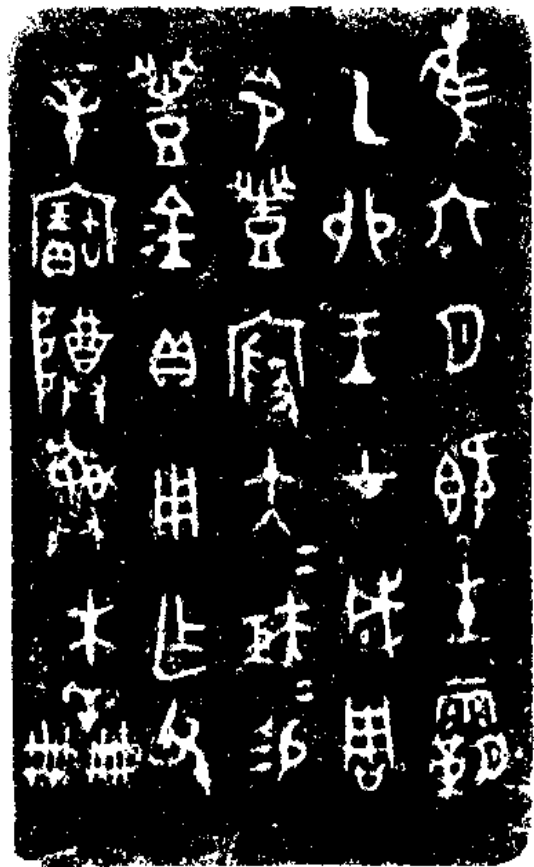 隹六月既生霸
乙卯王才成周
令豐殷大矩大矩易
豐金貝用乍父
辛寶尊彝木羊冊